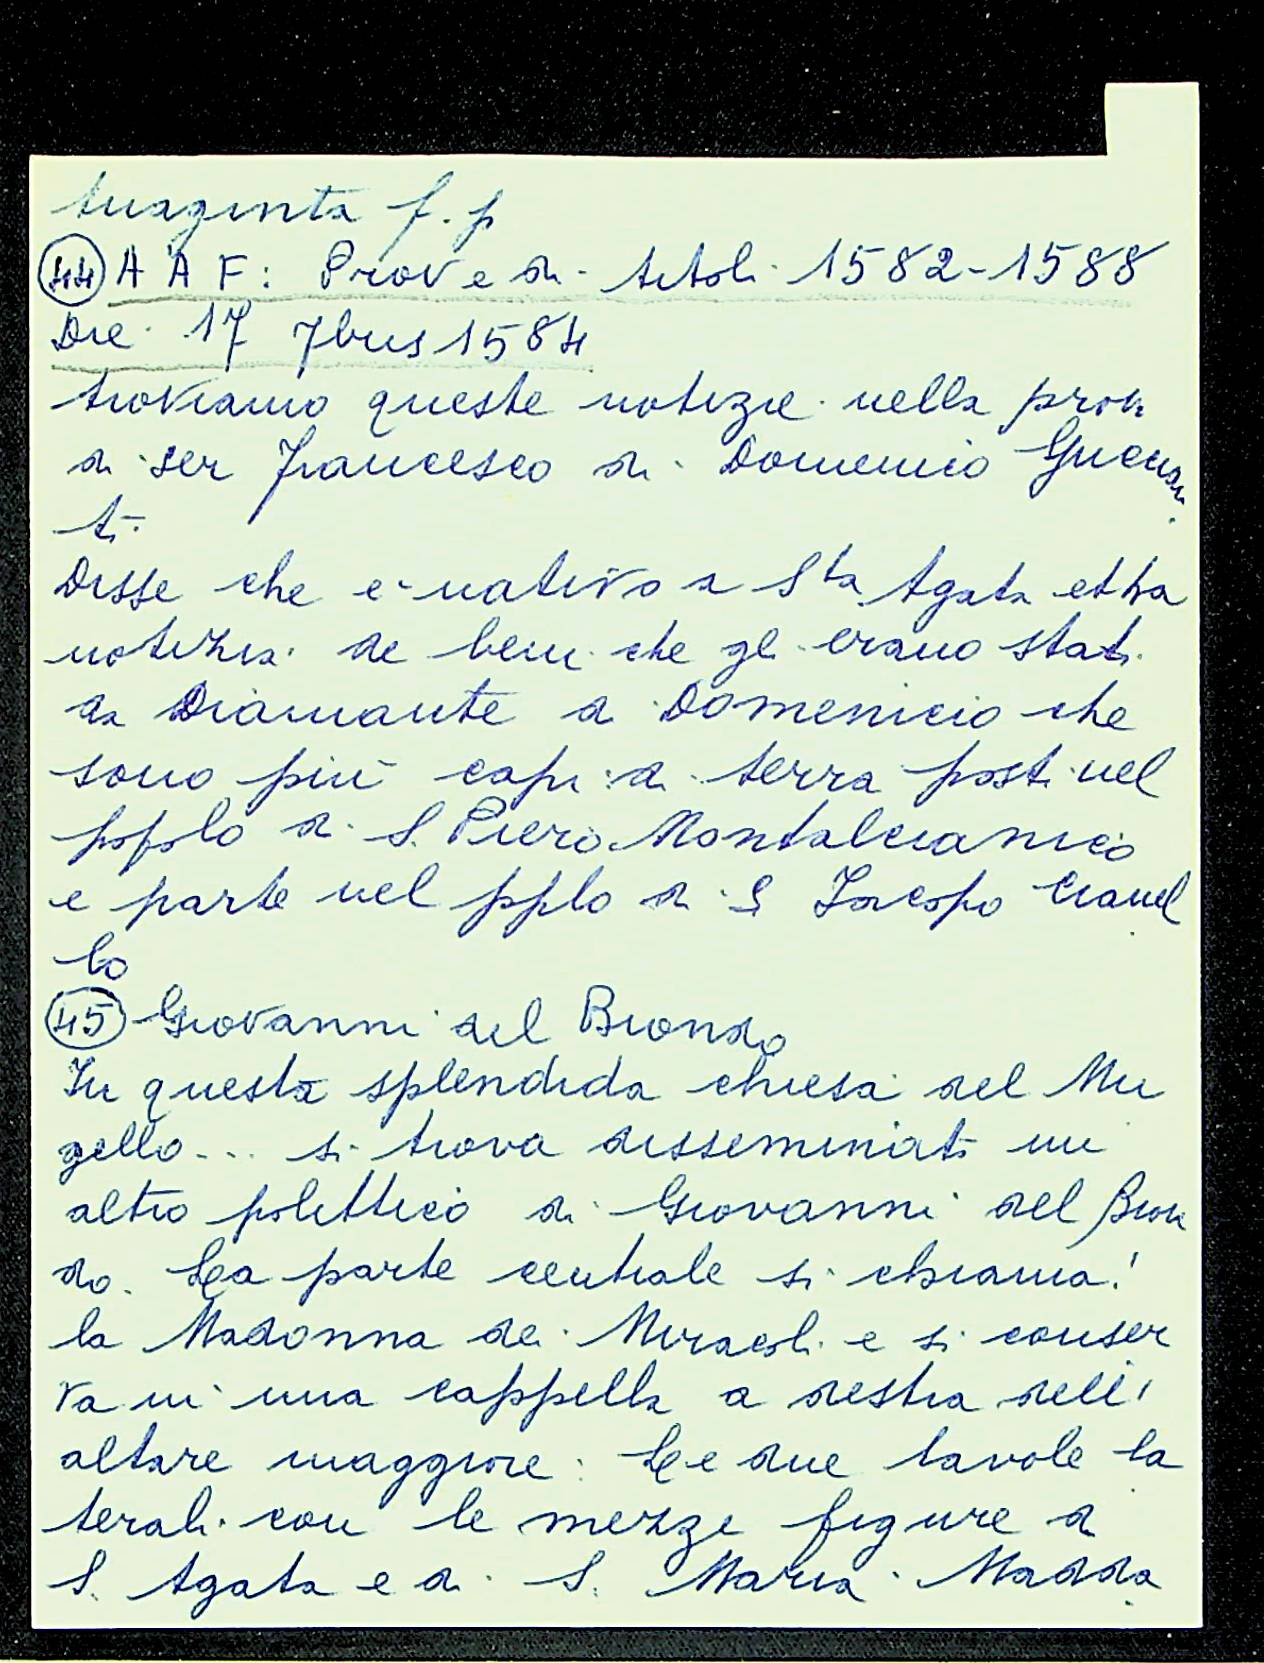 tuaginta f. p
44 A A F: Prove di titoli 1582-1588
Die 17 7bris 1584
troviamo queste notizie nella prova
di ser Francesco di Domenico
ti
Disse che è nativo a Sta Agata et ha
notizia de beni che gli erano stati
da Diamante a Domenicio che
sono più capi di terra posti nel
popolo di S. Piero Montalcianico
e parte nel pplo di S Jacopo
lo
45 Giovanni del Biondo
In questa splendida chiesa del Mu
gello... si trova disseminati un
altro polittico di Giovanni del Bion
do. La parte centrale si chiama!
la Madonna dei Miracoli e si conser
va in una cappella a destra dell'
altare maggiore. Le due tavole la
terali con le mezze figure di
S. Agata e di S. Maria Madda